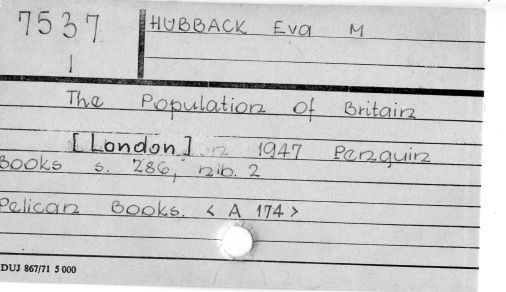 7537 HUBBACK Eva M
1
The Population of Britain
[London] 1947 Penguin
Books s. 286, nlb. 2
Pelican Books. < A 174 >
DUJ 867/71 5 000